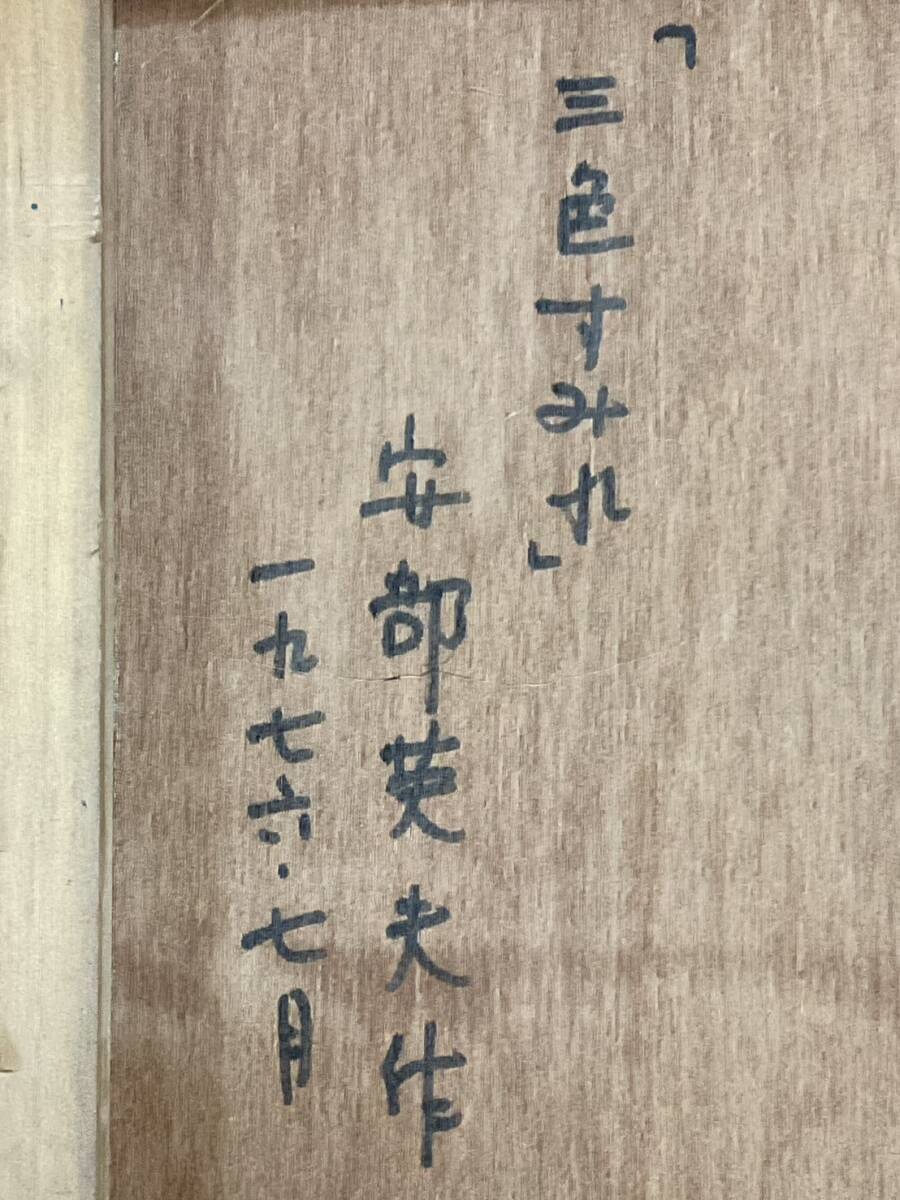 「三色すみれ」
安部英夫作
一九七六・七月